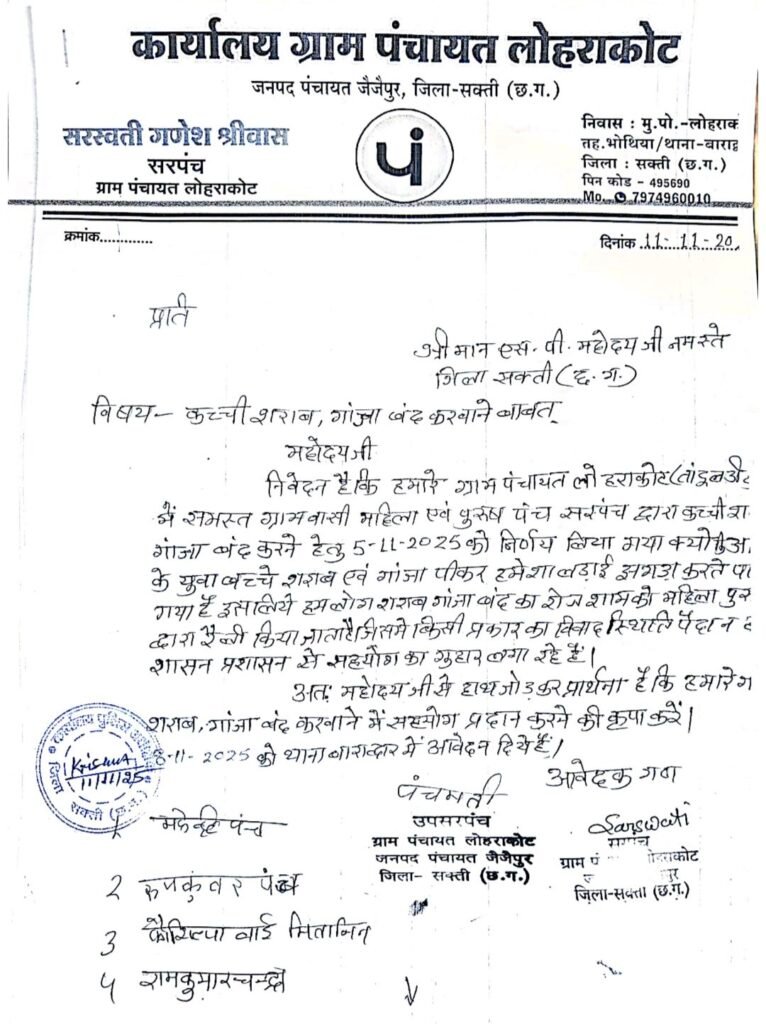 कार्यालय ग्राम पंचायत लोहराकोट
जनपद पंचायत जैजैपुर, जिला-सक्ती (छ.ग.)
सरस्वती गणेश श्रीवास
सरपंच
ग्राम पंचायत लोहराकोट
पं
निवास : मु.पो.-लोहराक
तह.भोथिया/थाना-बाराद्व
जिला : सक्ती (छ.ग.)
पिन कोड - 495690
Mo. 7974960010
क्रमांक.............
दिनांक 11-11-20
प्रति
श्री मान एस. पी. महोदय जी नमस्ते
जिला सक्ती (छ. ग.)
विषय - कच्ची शराब, गांजा बंद करवाने बाबत्
महोदय जी
निवेदन है कि हमारे ग्राम पंचायत लोहराकोट
में समस्त ग्रामवासी महिला एवं पुरुष पंच सरपंच द्वारा कच्ची श
गांजा बंद करने हेतु 5-11-2025 को निर्णय लिया गया
के युवा बच्चे शराब एवं गांजा पीकर हमेशा लड़ाई झगड़ा करते पा
गया है इसलिये हम लोग शराब गांजा बंद का रोज शाम को महिला पुर
द्वारा रैली किया जाता है जिसमे किसी प्रकार का विवाद स्थिति पैदा न
शासन प्रशासन से सहयोग का गुहार लगा रहे हैं।
अतः महोदय जी से हाथ जोड़ कर प्रार्थना है कि हमारे ग
शराब, गांजा बंद करवाने में सहयोग प्रदान करने की कृपा करें।
-11-2025 को थाना बाराद्वार में आवेदन दिये हैं।
कार्यालय पुलिस
Krishna
11/11/25
जिला सक्ती (छ.ग.)
आवेदक गण
पंचमती
उपसरपंच
ग्राम पंचायत लोहराकोट
जनपद पंचायत जैजैपुर
जिला- सक्ती (छ.ग.)
Sarswati
सरपंच
ग्राम पं
जिला-सक्ती (छ.ग.)
1 पंच
2 रूपकुंवर पंच
3 कौशिल्या बाई मितानिन
4 रामकुमार चन्द्रा